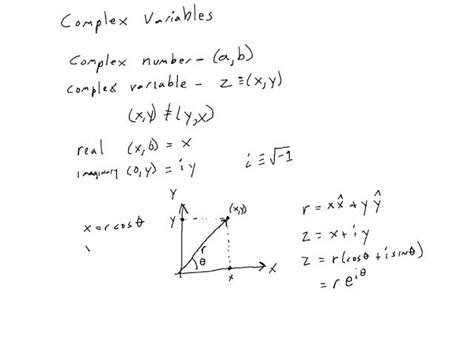 Complex Variables
Complex number - (a,b)
complex variable - z ≡ (x,y)
(x,y) ≠ (y,x)
real (x,0) = x
imaginary (0,y) = iy
i ≡ √-1
Y
y
(x,y)
r
θ
x
X
x = r cosθ
r = x x̂ + y ŷ
z = x + iy
z = r(cosθ + i sinθ)
= r e^{iθ}